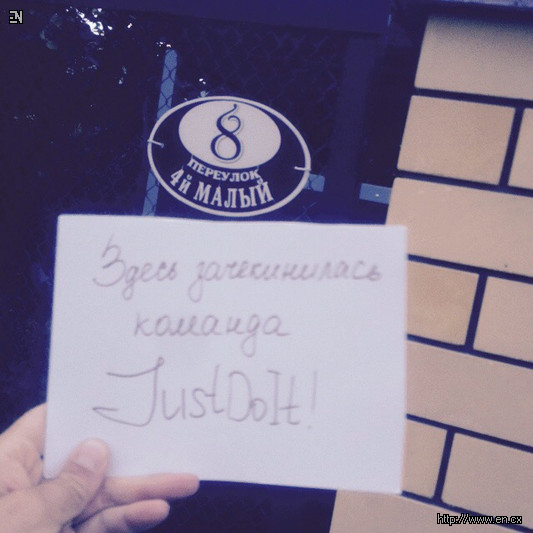 EN
8
ПЕРЕУЛОК
4й МАЛЫЙ
Здесь зачекинилась
команда
JustDoIt!
http://www.en.cx